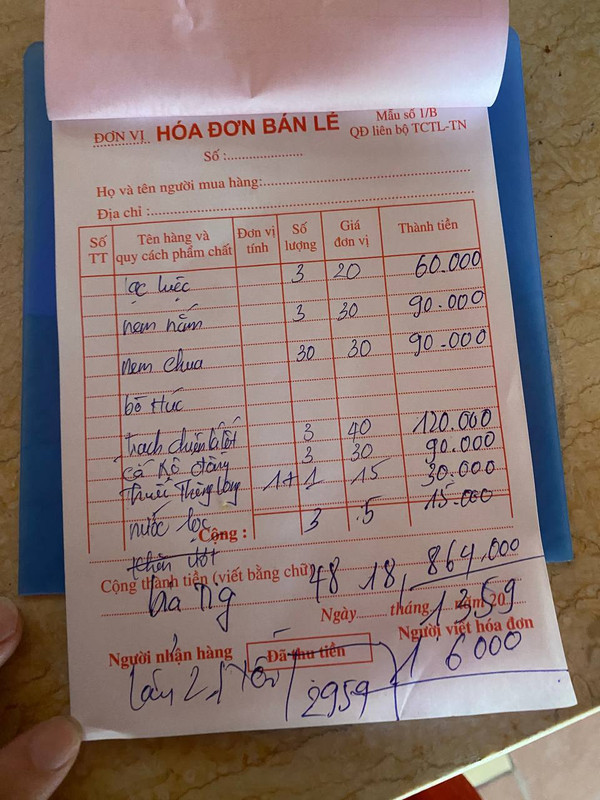 ĐƠN VỊ HÓA ĐƠN BÁN LẺ Mẫu số 1/B
QĐ liên bộ TCTL-TN
Số :
Họ và tên người mua hàng:
Địa chỉ :
Số TT Tên hàng và quy cách phẩm chất Đơn vị tính Số lượng Giá đơn vị Thành tiền
lạc luộc 3 20 60.000
nem nắm 3 30 90.000
nem chua 30 30 90.000
bò Húc
chiên 3 40 120.000
cá 3 30 90.000
Thuốc Thăng Long 1+1 15 30.000
nước lọc 3 5 15.000
Cộng :
khăn ướt
Cộng thành tiền (viết bằng chữ) 48 18 864.000
Ngày tháng năm 20
1359
Người nhận hàng Đã thu tiền Người viết hóa đơn
lần 2 2959 1 6000